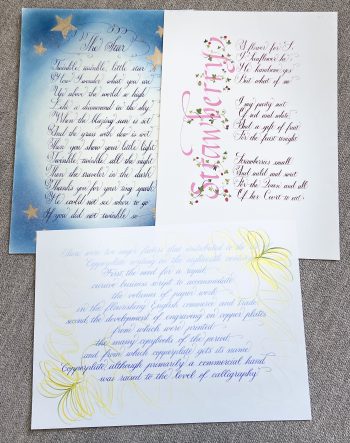 The Star
Twinkle, twinkle, little star
How I wonder what you are
Up above the world so high
Like a diamond in the sky
When the blazing sun is set
And the grass with dew is wet
Then you show your little light
Twinkle, twinkle, all the night
Then the traveler in the dark
Thanks you for your tiny spark
He could not see where to go
If you did not twinkle so
Strawberries
A flower for S,
A Sunflower
He handsome
But what of me
I my party
Of red and white
But a gift of fruit
For the first tonight
Strawberries small
And wild and sweet
For the Queen and all
Of her Court to eat
There were two major factors that contributed to the
Copperplate writing in the eighteenth century
First the need for a rapid,
cursive business script to accommodate
the volumes of paper work
in the flourishing English commerce and trade;
second, the development of engraving on copper plates
from which were printed
the many copybooks of the period
and from which copperplate gets its name.
Copperplate, although primarily a commercial hand,
was raised to the level of calligraphy